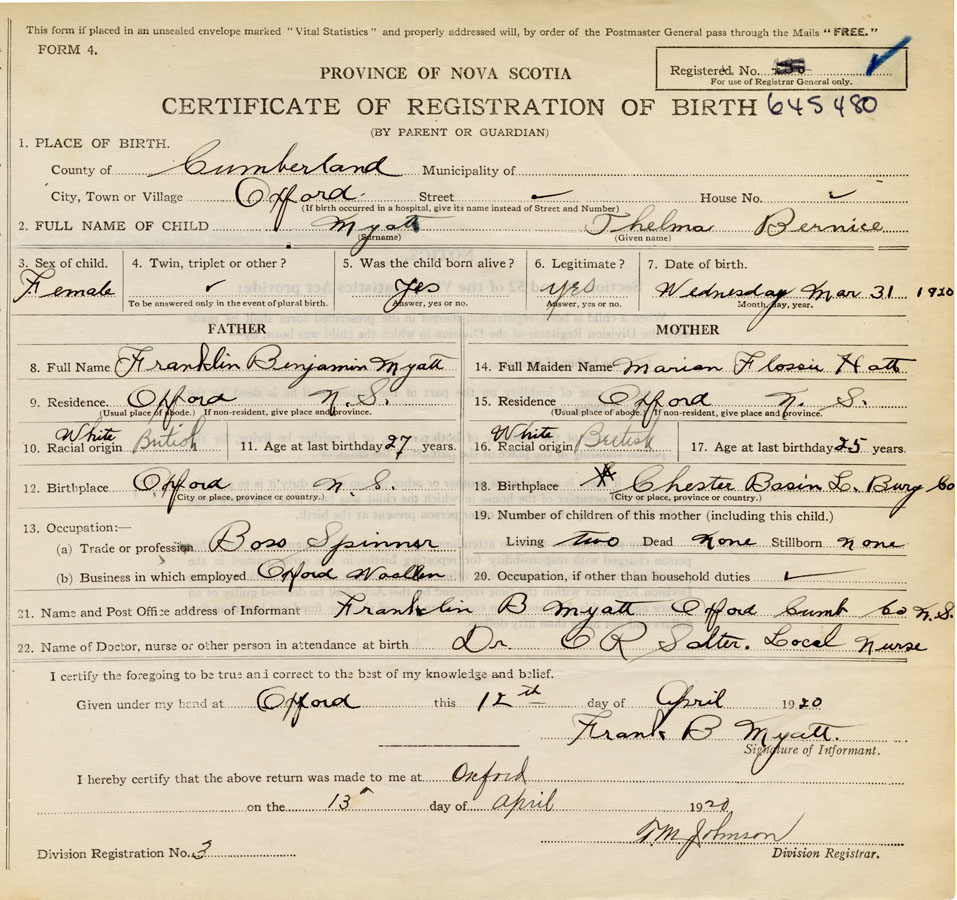 This form if placed in an unsealed envelope marked "Vital Statistics" and properly addressed will, by order of the Postmaster General pass through the Mails "FREE."
FORM 4.
Registered No.
For use of Registrar General only.
PROVINCE OF NOVA SCOTIA
CERTIFICATE OF REGISTRATION OF BIRTH 645480
(BY PARENT OR GUARDIAN)
1. PLACE OF BIRTH.
County of Cumberland Municipality of
City, Town or Village Oxford Street ✓ House No. ✓
(If birth occurred in a hospital, give its name instead of Street and Number)
2. FULL NAME OF CHILD Myatt Thelma Bernice
(Surname) (Given name)
3. Sex of child. 4. Twin, triplet or other? 5. Was the child born alive? 6. Legitimate? 7. Date of birth.
Female ✓ Yes yes Wednesday Mar 31 1920
To be answered only in the event of plural birth. Answer, yes or no. Answer, yes or no. Month, day, year.
FATHER MOTHER
8. Full Name Franklin Benjamin Myatt 14. Full Maiden Name Marian Flossie Hatt
9. Residence. Oxford N.S. 15. Residence Oxford N. S.
(Usual place of abode.) If non-resident, give place and province. (Usual place of abode.) If non-resident, give place and province.
White White
10. Racial origin British 11. Age at last birthday 27 years. 16. Racial origin British 17. Age at last birthday 25 years.
12. Birthplace Oxford N.S. 18. Birthplace Chester Basin L. Burg Co
(City or place, province or country.) (City or place, province or country.)
13. Occupation:— 19. Number of children of this mother (including this child.)
(a) Trade or profession Boss Spinner Living two Dead None Stillborn None
(b) Business in which employed Oxford Woollen 20. Occupation, if other than household duties ✓
21. Name and Post Office address of Informant Franklin B Myatt Oxford Cumb Co N.S.
22. Name of Doctor, nurse or other person in attendance at birth Dr. C R Salter. Local Nurse
I certify the foregoing to be true and correct to the best of my knowledge and belief.
Given under my hand at Oxford this 12th day of April 1920
Frank B Myatt.
Signature of Informant.
I hereby certify that the above return was made to me at Oxford
on the 13 day of April 1920
TM Johnson
Division Registration No. 3 Division Registrar.